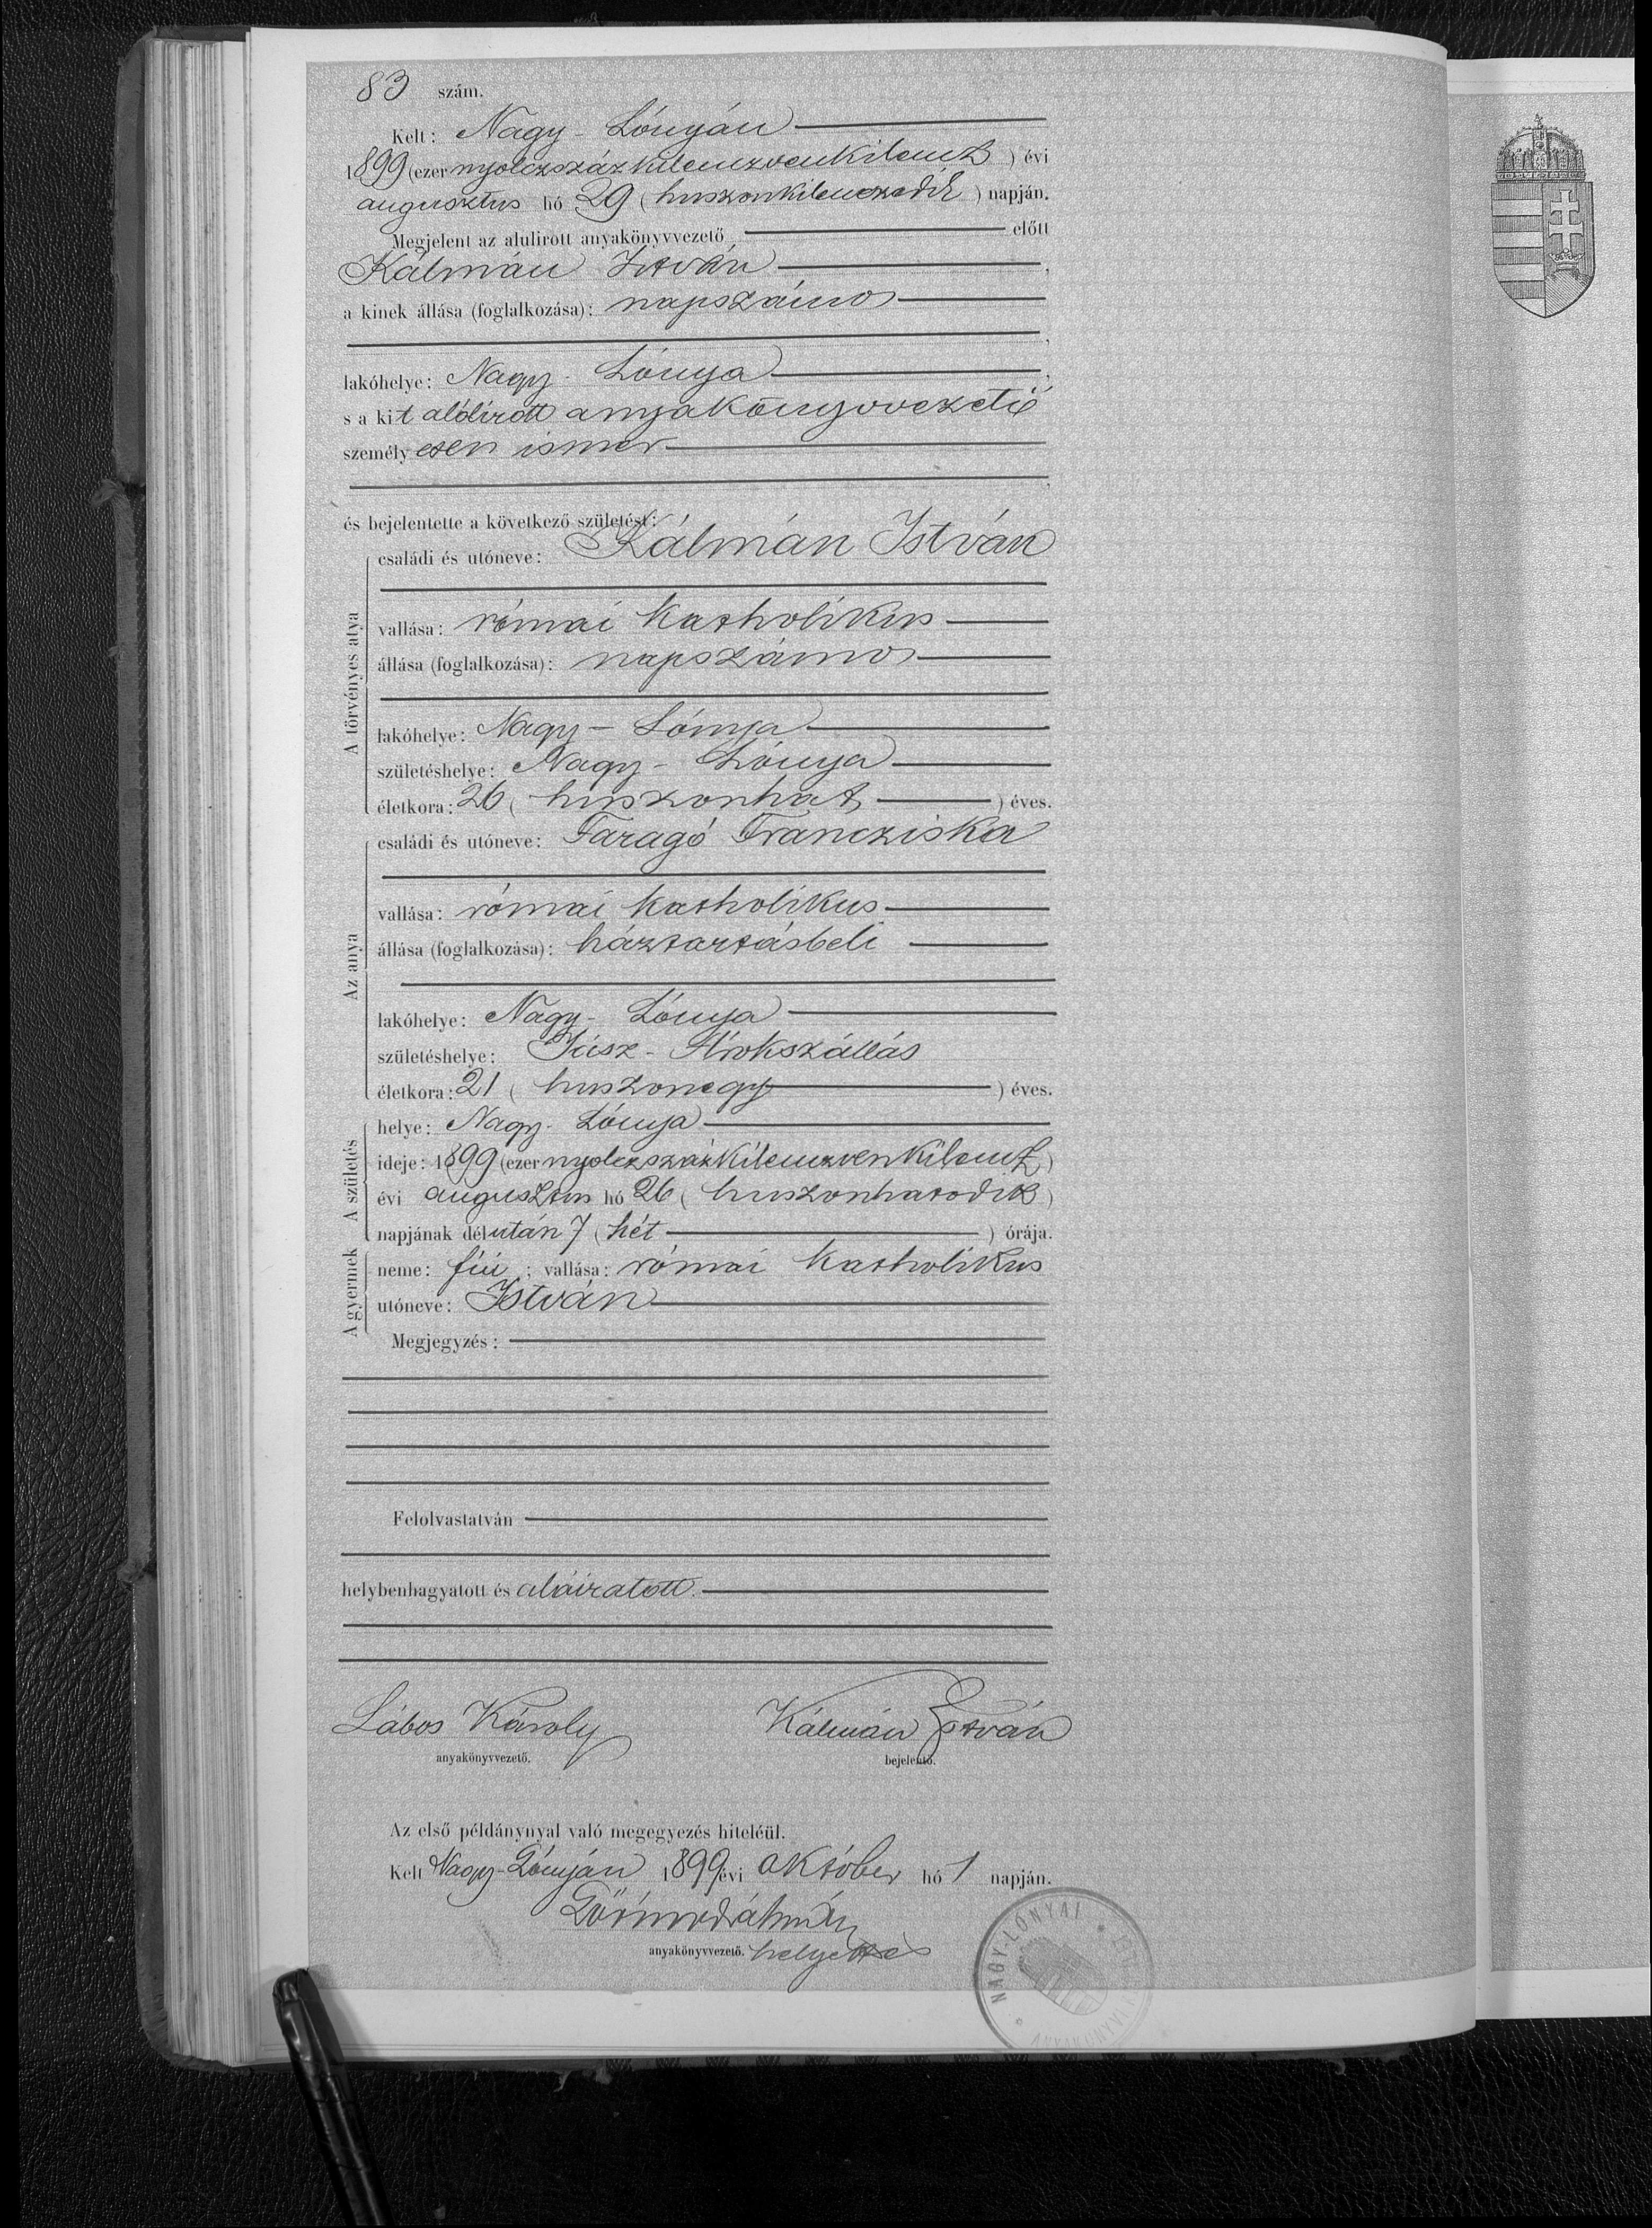 83 szám.
Kelt: Nagy-Lónyán
1899 (ezer nyolczszázkilenczvenkilencz) évi
augusztus hó 29 (huszonkilenczedik) napján.
Megjelent az alulirott anyakönyvvezető előtt
Kálmán István,
a kinek állása (foglalkozása): napszámos
,
lakóhelye: Nagy-Lónya,
s a kit alólirott anyakönyvvezető
személyesen ismer
,
és bejelentette a következő születést:
A törvényes atya
családi és utóneve: Kálmán István
vallása: római katholikus
állása (foglalkozása): napszámos
lakóhelye: Nagy-Lónya
születéshelye: Nagy-Lónya
életkora: 26 (huszonhat) éves.
Az anya
családi és utóneve: Faragó Francziska
vallása: római katholikus
állása (foglalkozása): háztartásbeli
lakóhelye: Nagy-Lónya
születéshelye: Jász-Árokszállás
életkora: 21 (huszonegy) éves.
A születés
helye: Nagy-Lónya
ideje: 1899 (ezer nyolczszázkilenczvenkilencz)
évi augusztus hó 26 (huszonhatodik)
napjának délután 7 (hét) órája.
A gyermek
neme: fiú; vallása: római katholikus
utóneve: István
Megjegyzés:
Felolvastatván
helybenhagyatott és aláiratott.
Lábos Károly Kálmán István
anyakönyvvezető. bejelentő.
Az első példánynyal való megegyezés hiteléül.
Kelt Nagy-Lónyán 1899 évi október hó 1 napján.
anyakönyvvezető. helyettes
NAGY-LÓNYAI